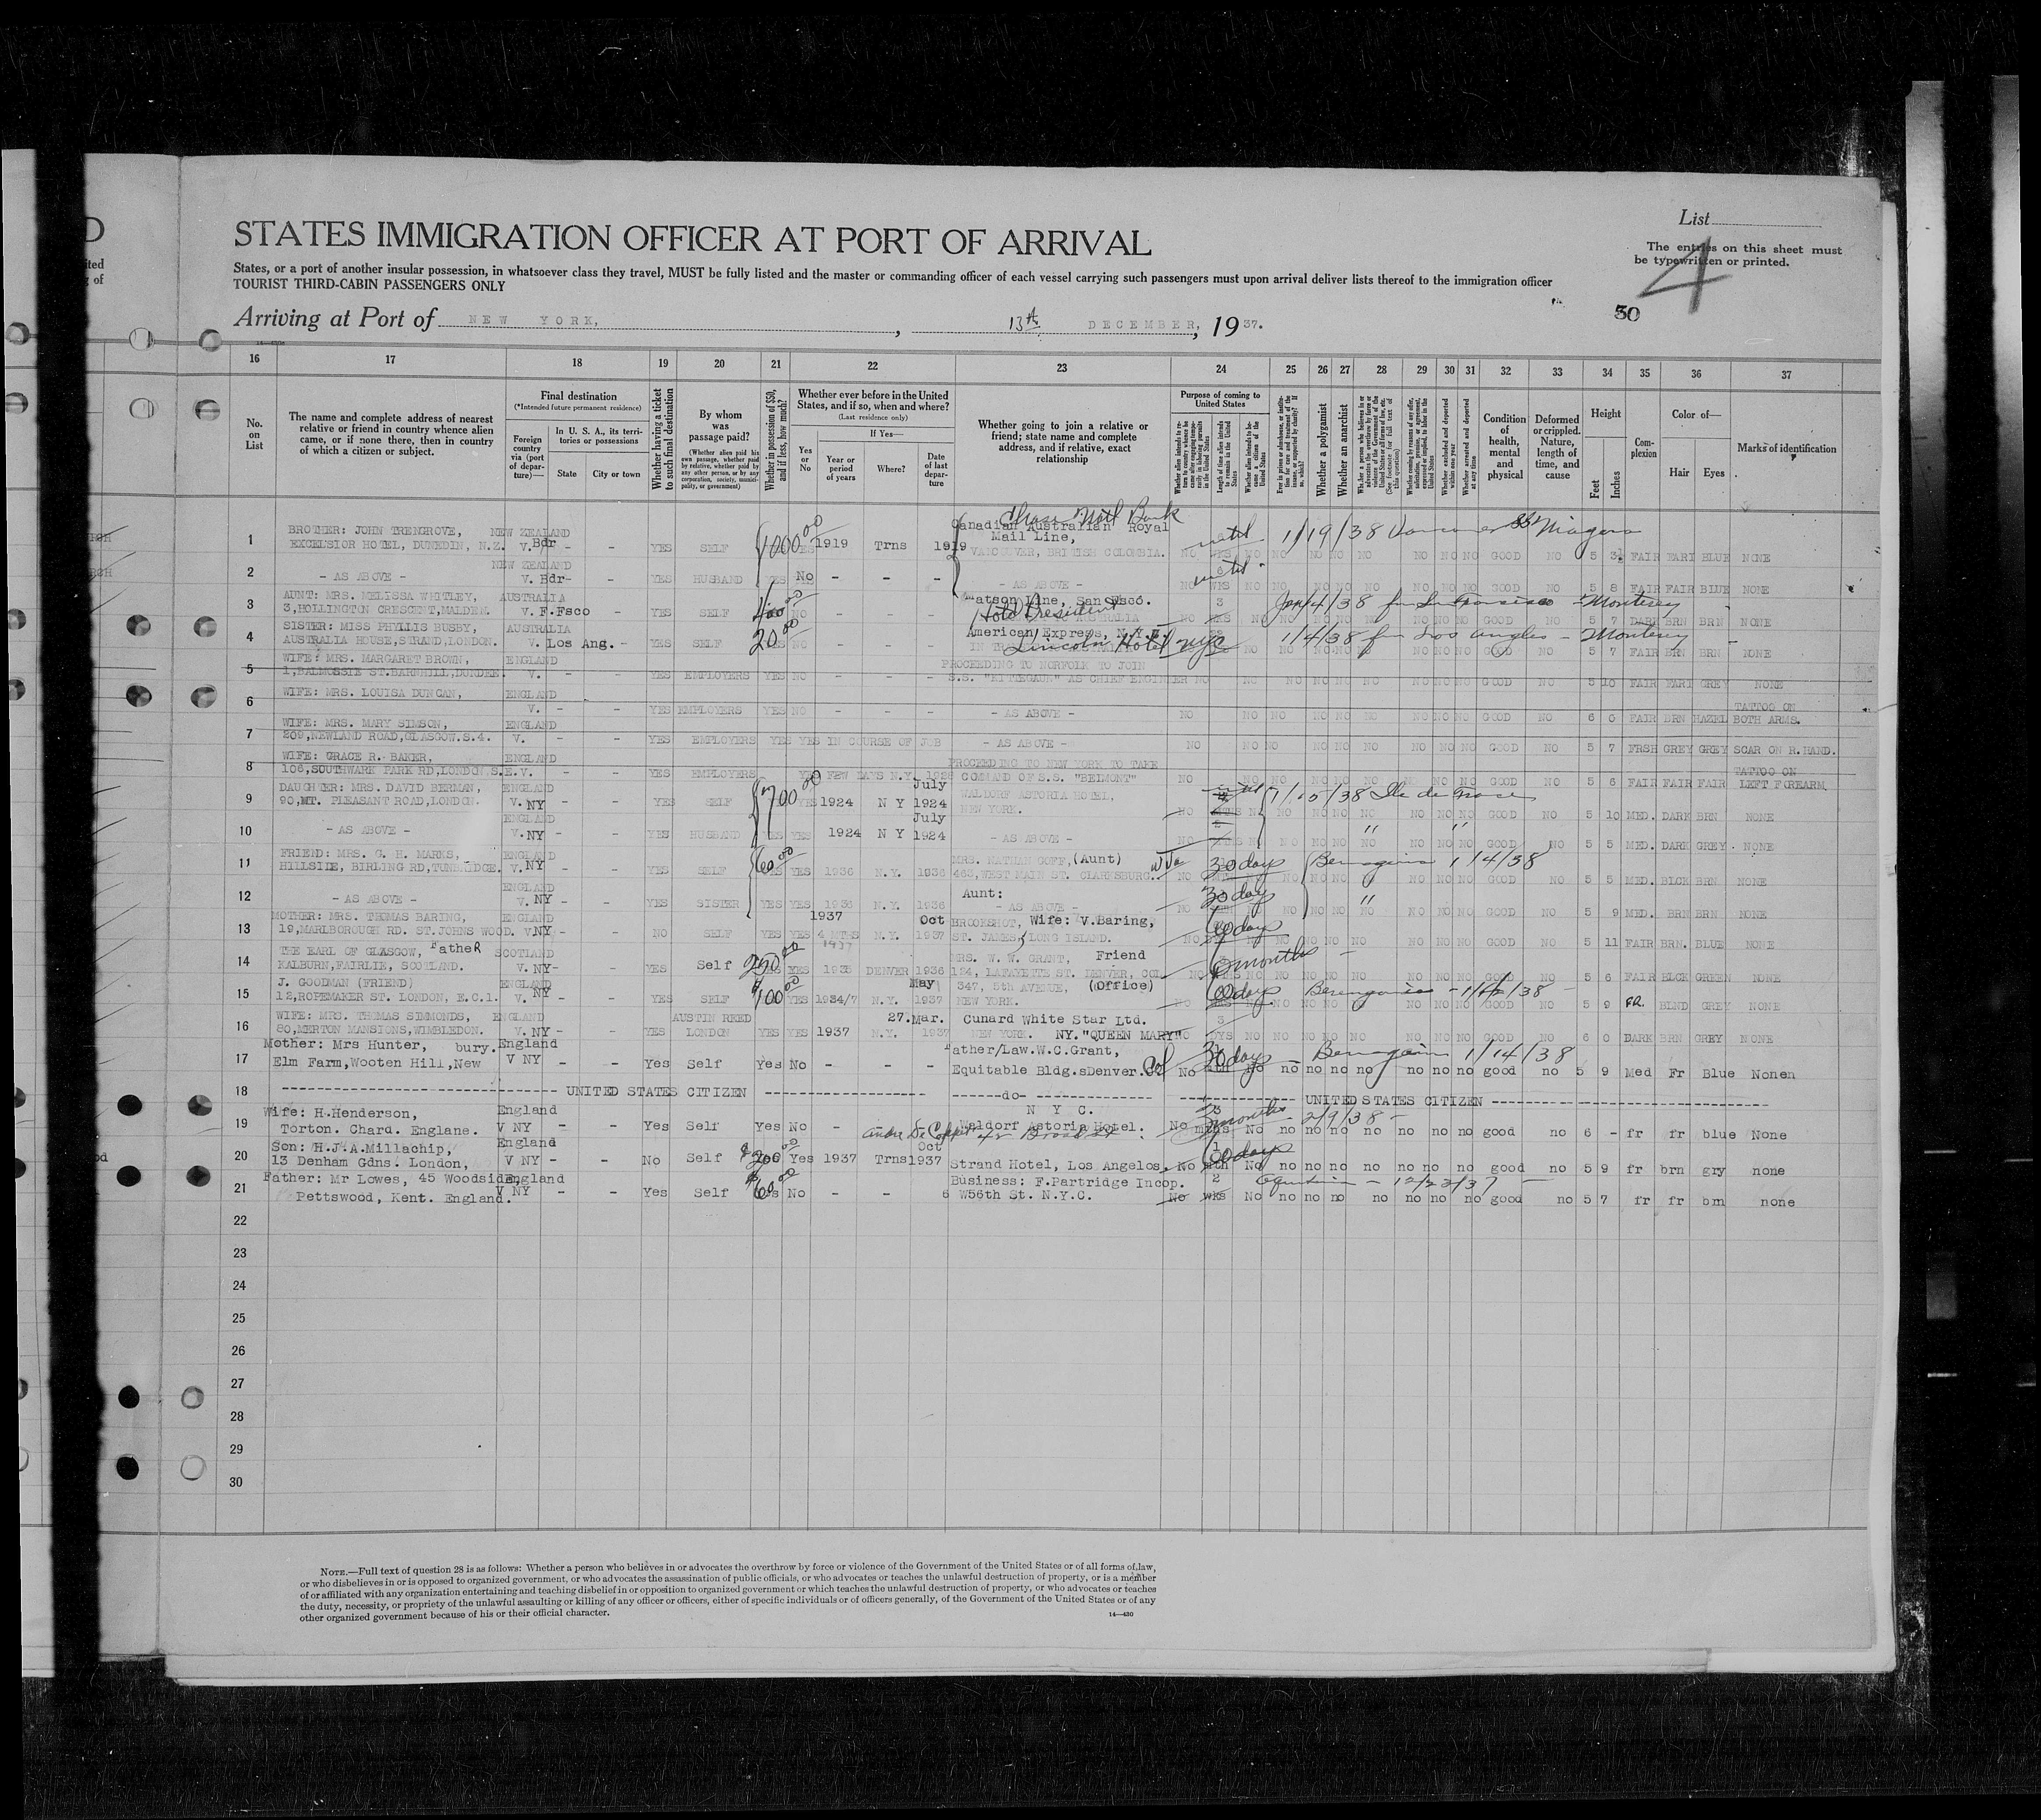 List
The entries on this sheet must
be typewritten or printed.
4
50
STATES IMMIGRATION OFFICER AT PORT OF ARRIVAL
States, or a port of another insular possession, in whatsoever class they travel, MUST be fully listed and the master or commanding officer of each vessel carrying such passengers must upon arrival deliver lists thereof to the immigration officer
TOURIST THIRD-CABIN PASSENGERS ONLY
Arriving at Port of NEW YORK, , 13th DECEMBER, 1937.
16 17 18 19 20 21 22 23 24 25 26 27 28 29 30 31 32 33 34 35 36 37
No. on List
The name and complete address of nearest relative or friend in country whence alien came, or if none there, then in country of which a citizen or subject.
Final destination
(*Intended future permanent residence)
Foreign country via (port of departure)—
In U. S. A., its territories or possessions
State City or town
Whether having a ticket to such final destination
By whom was passage paid?
(Whether alien paid his own passage, whether paid by relative, whether paid by any other person, or by any corporation, society, municipality, or government)
Whether in possession of $50, and if less, how much?
Whether ever before in the United States, and if so, when and where?
(Last residence only)
Yes or No
If Yes—
Year or period of years Where? Date of last departure
Whether going to join a relative or friend; state name and complete address, and if relative, exact relationship
Purpose of coming to United States
Whether a polygamist
Whether an anarchist
Condition of health, mental and physical
Deformed or crippled. Nature, length of time, and cause
Height
Feet Inches
Complexion
Color of—
Hair Eyes
Marks of identification
1 BROTHER: JOHN TRENGROVE, NEW ZEALAND 1000 00 Canadian Australian Royal
EXCELSIOR HOTEL, DUNEDIN, N.Z. V. Bdr - - YES SELF YES 1919 Trns 1919 Mail Line, until 1/19/38 Vancouver SS Niagara
VANCOUVER, BRITISH COLOMBIA. NO WKS NO NO NO NO NO NO NO NO GOOD NO 5 3½ FAIR FARI BLUE NONE
2 NEW ZEALAND
- AS ABOVE - V. Bdr- - YES HUSBAND YES No - - - - AS ABOVE - until NO WKS NO NO NO NO NO NO NO NO GOOD NO 5 8 FAIR FAIR BLUE NONE
3 AUNT: MRS. MELISSA WHITLEY, AUSTRALIA 400 00 Matson Line, San Fsco. 3 Jan/4/38 for San Francisco - Monterey
3,HOLLINGTON CRESCENT,MALDEN. V. F.Fsco - YES SELF NO - - - Hotel President NO NO NO NO NO NO NO NO GOOD NO 5 7 DARK BRN BRN NONE
4 SISTER: MISS PHYLLIS BUSBY, AUSTRALIA 20 00 American Express, N.Y.C. 1/4/38 for Los Angeles - Monterey
AUSTRALIA HOUSE,STRAND,LONDON. V. Los Ang. - YES SELF NO - - - Lincoln Hotel NYC NO NO NO NO NO NO NO GOOD NO 5 7 FAIR BRN BRN NONE
5 WIFE: MRS. MARGARET BROWN, ENGLAND PROCEEDING TO NORFOLK TO JOIN
1,BALMOSSIE ST.BARNHILL,DUNDEE. V. - - YES EMPLOYERS YES NO - - - S.S. "KITTEGAUN" AS CHIEF ENGINEER NO NO NO NO NO NO NO NO NO GOOD NO 5 10 FAIR FARI GREY NONE
6 WIFE: MRS. LOUISA DUNCAN, ENGLAND TATTOO ON
V. - - YES EMPLOYERS YES NO - - - - AS ABOVE - NO NO NO NO NO NO NO NO NO GOOD NO 6 0 FAIR BRN HAZEL BOTH ARMS.
7 WIFE: MRS. MARY SIMSON, ENGLAND
209,NEWLAND ROAD,GLASGOW.S.4. V. - - YES EMPLOYERS YES YES IN COURSE OF JOB - AS ABOVE - NO NO NO NO NO NO NO NO NO GOOD NO 5 7 FRSH GREY GREY SCAR ON R.HAND.
8 WIFE: GRACE R. BAKER, ENGLAND PROCEEDING TO NEW YORK TO TAKE TATTOO ON
106,SOUTHWARK PARK RD,LONDON,S.E. V. - - YES EMPLOYERS YES FEW DAYS N.Y. COMMAND OF S.S. "BELMONT" NO NO NO NO NO NO NO NO NO GOOD NO 5 6 FAIR FAIR FAIR LEFT FOREARM.
9 DAUGHTER: MRS. DAVID BERMAN, ENGLAND 700 00 July WALDORF ASTORIA HOTEL, until 1/15/38 Ile de France
90,MT. PLEASANT ROAD,LONDON. V. NY - - YES SELF YES 1924 N Y 1924 NEW YORK. NO NO NO NO NO NO NO NO GOOD NO 5 10 MED. DARK BRN NONE
10 ENGLAND July
- AS ABOVE - V. NY - - YES HUSBAND YES YES 1924 N Y 1924 - AS ABOVE - NO NO NO NO NO NO NO NO NO GOOD NO 5 5 MED. DARK GREY NONE
11 FRIEND: MRS. G. H. MARKS, ENGLAND 60 00 MRS. NATHAN GOFF,(Aunt) W Va 30 days Berengaria 1/4/38
HILLSIDE, BIRLING RD,TUNBRIDGE. V. NY - - YES SELF YES YES 1936 N.Y. 1936 463,WEST MAIN ST. CLARKSBURG. NO NO NO NO NO NO NO NO GOOD NO 5 5 MED. BLCK BRN NONE
12 ENGLAND Aunt: 30 days
- AS ABOVE - V. NY - - YES SISTER YES YES 1936 N.Y. 1936 - AS ABOVE - NO NO NO NO NO NO NO NO NO GOOD NO 5 9 MED. BRN BRN NONE
13 MOTHER: MRS. THOMAS BARING, ENGLAND 1937 Oct BROOKSHOT, Wife: V.Baring, 60 days
19,MARLBOROUGH RD. ST.JOHNS WOOD. V NY - - NO SELF YES YES 4 MTHS N.Y. 1937 ST. JAMES, LONG ISLAND. NO NO NO NO NO NO NO NO GOOD NO 5 11 FAIR BRN. BLUE NONE
14 THE EARL OF GLASGOW, FatheR SCOTLAND 250 00 1937 MRS. W. W. GRANT, Friend 6 months -
KALBURN,FAIRLIE, SCOTLAND. V. NY- - YES Self YES 1936 DENVER 1936 124, LAFAYETTE ST. DENVER, COL NO NO NO NO NO NO NO NO NO GOOD NO 5 6 FAIR BLCK GREEN NONE
15 J. GOODMAN (FRIEND) ENGLAND 100 00 May 347, 5th AVENUE, (Office) 60 days Berengaria
12,ROPEMAKER ST. LONDON, E.C.1. V. NY - - YES SELF YES 1934/7 N.Y. 1937 NEW YORK. NO NO NO NO NO NO NO NO GOOD NO 5 9 FR. BLND GREY NONE
16 WIFE: MRS. THOMAS SIMMONDS, ENGLAND AUSTIN REED 27.Mar. Cunard White Star Ltd. 3
80,MERTON MANSIONS,WIMBLEDON. V. NY - - YES LONDON YES YES 1937 N.Y. 1937 NEW YORK. NY. "QUEEN MARY" NO DYS NO NO NO NO NO NO NO NO GOOD NO 6 0 DARK BRN GREY NONE
17 Mother: Mrs Hunter, bury. England Father/Law.W.C.Grant, 30 days - Berengaria 1/14/38
Elm Farm,Wooten Hill,New V NY - - Yes Self Yes No - - - Equitable Bldg.sDenver. Col No No no no no no no no no good no 5 9 Med Fr Blue Nonen
18 ---------- UNITED STATES CITIZEN ---------- ------do- ------ UNITED STATES CITIZEN ----------
19 Wife: H.Henderson, England N Y C. 3 months - 2/9/38 -
Torton. Chard. Englane. V NY - - Yes Self Yes No - Waldorf Astoria Hotel. No mths No no no no no no no no good no 6 - fr fr blue None
20 Son: H.J.A.Millachip, England $200 00 Oct 60 days
13 Denham Gdns. London, V NY - - No Self Yes 1937 Trns1937 Strand Hotel, Los Angelos. No mth No no no no no no no no good no 5 9 fr brn gry none
21 Father: Mr Lowes, 45 Woodside, England $60 00 Business: F.Partridge Incop. 2 12/23/37 -
Pettswood, Kent. England. V NY - - Yes Self No - - 6 W56th St. N.Y.C. No wks No no no no no no no no good no 5 7 fr fr brn none
22
23
24
25
26
27
28
29
30
NOTE.—Full text of question 28 is as follows: Whether a person who believes in or advocates the overthrow by force or violence of the Government of the United States or of all forms of law,
or who disbelieves in or is opposed to organized government, or who advocates the assassination of public officials, or who advocates or teaches the unlawful destruction of property, or is a member
of or affiliated with any organization entertaining and teaching disbelief in or opposition to organized government or which teaches the unlawful destruction of property, or who advocates or teaches
the duty, necessity, or propriety of the unlawful assaulting or killing of any officer or officers, either of specific individuals or of officers generally, of the Government of the United States or of any
other organized government because of his or their official character.
14—430